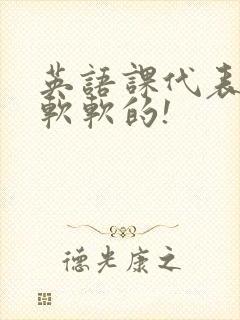 英語課代表
軟軟的!
德光康之